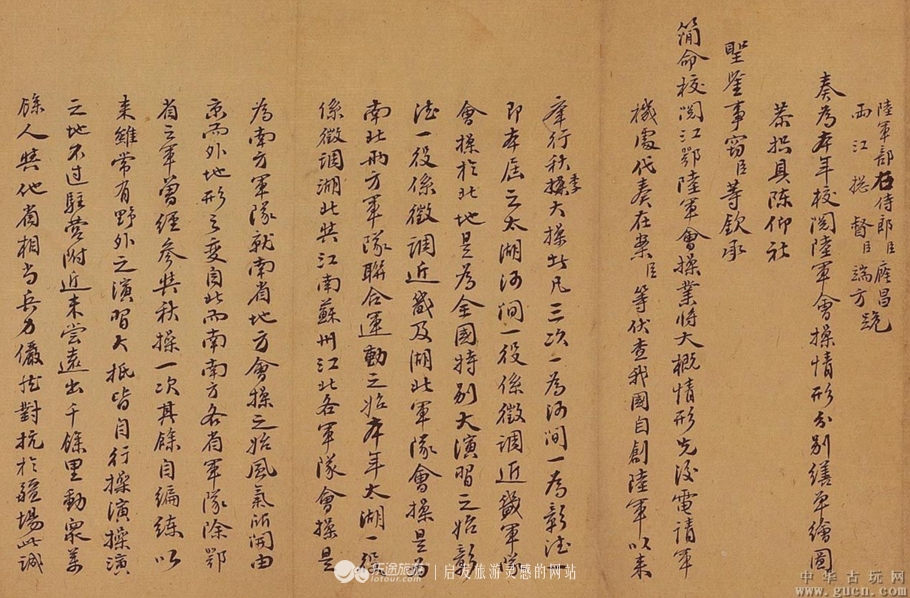 陸軍部右侍郎臣廕昌跪
兩江總督臣端方
奏為本年校閱陸軍會操情形分別繕單繪圖
恭摺具陳仰祈
聖鑒事竊臣等欽承
簡命校閱江鄂陸軍會操業將大概情形先後電請軍
機處代奏在案臣等伏查我國自創陸軍以來
舉行秋季大操者凡三次一為河間一為彰德一
即本屆之太湖河間一役係徵調近畿軍隊
會操於北地是為全國特別大演習之始彰
德一役係徵調近畿及湖北軍隊會操是為
南北兩方軍隊聯合運動之始本年太湖一役
係徵調湖北與江南蘇州江北各軍隊會操是
為南方軍隊就南省地方會操之始風氣所開由
京而外地形之變自北而南南方各省軍隊除鄂
省之軍曾經參與秋操一次其餘自編練以
來雖常有野外之演習大抵皆自行操演操演
之地不過駐營附近未嘗遠出千餘里動眾萬
餘人與他省相當兵力儼然對抗於疆場此誠
途旅游
lotour.com
启友旅游灵感的网站
中华古玩网
www.gucn.com